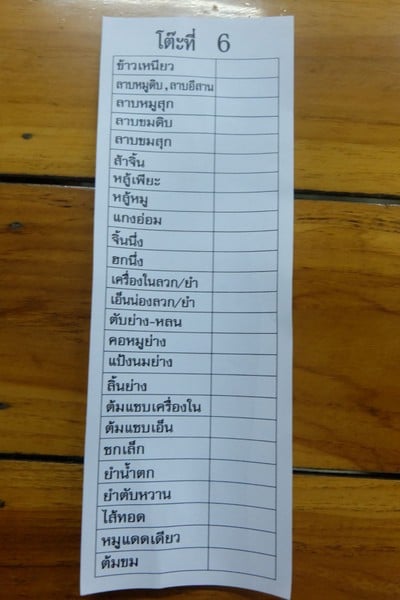 โต๊ะที่ 6
ข้าวเหนียว
ลาบหมูดิบ,ลาบอีสาน
ลาบหมูสุก
ลาบขมดิบ
ลาบขมสุก
ส้าจิ้น
หลู้เพี้ยะ
หลู้หมู
แกงอ่อม
จิ้นนึ่ง
ฮกนึ่ง
เครื่องในลวก/ยำ
เอ็นน่องลวก/ยำ
ตับย่าง-หลน
คอหมูย่าง
แป้งนมย่าง
ลิ้นย่าง
ต้มแซบเครื่องใน
ต้มแซบเอ็น
ซกเล็ก
ยำน้ำตก
ยำตับหวาน
ไส้ทอด
หมูแดดเดียว
ต้มขม